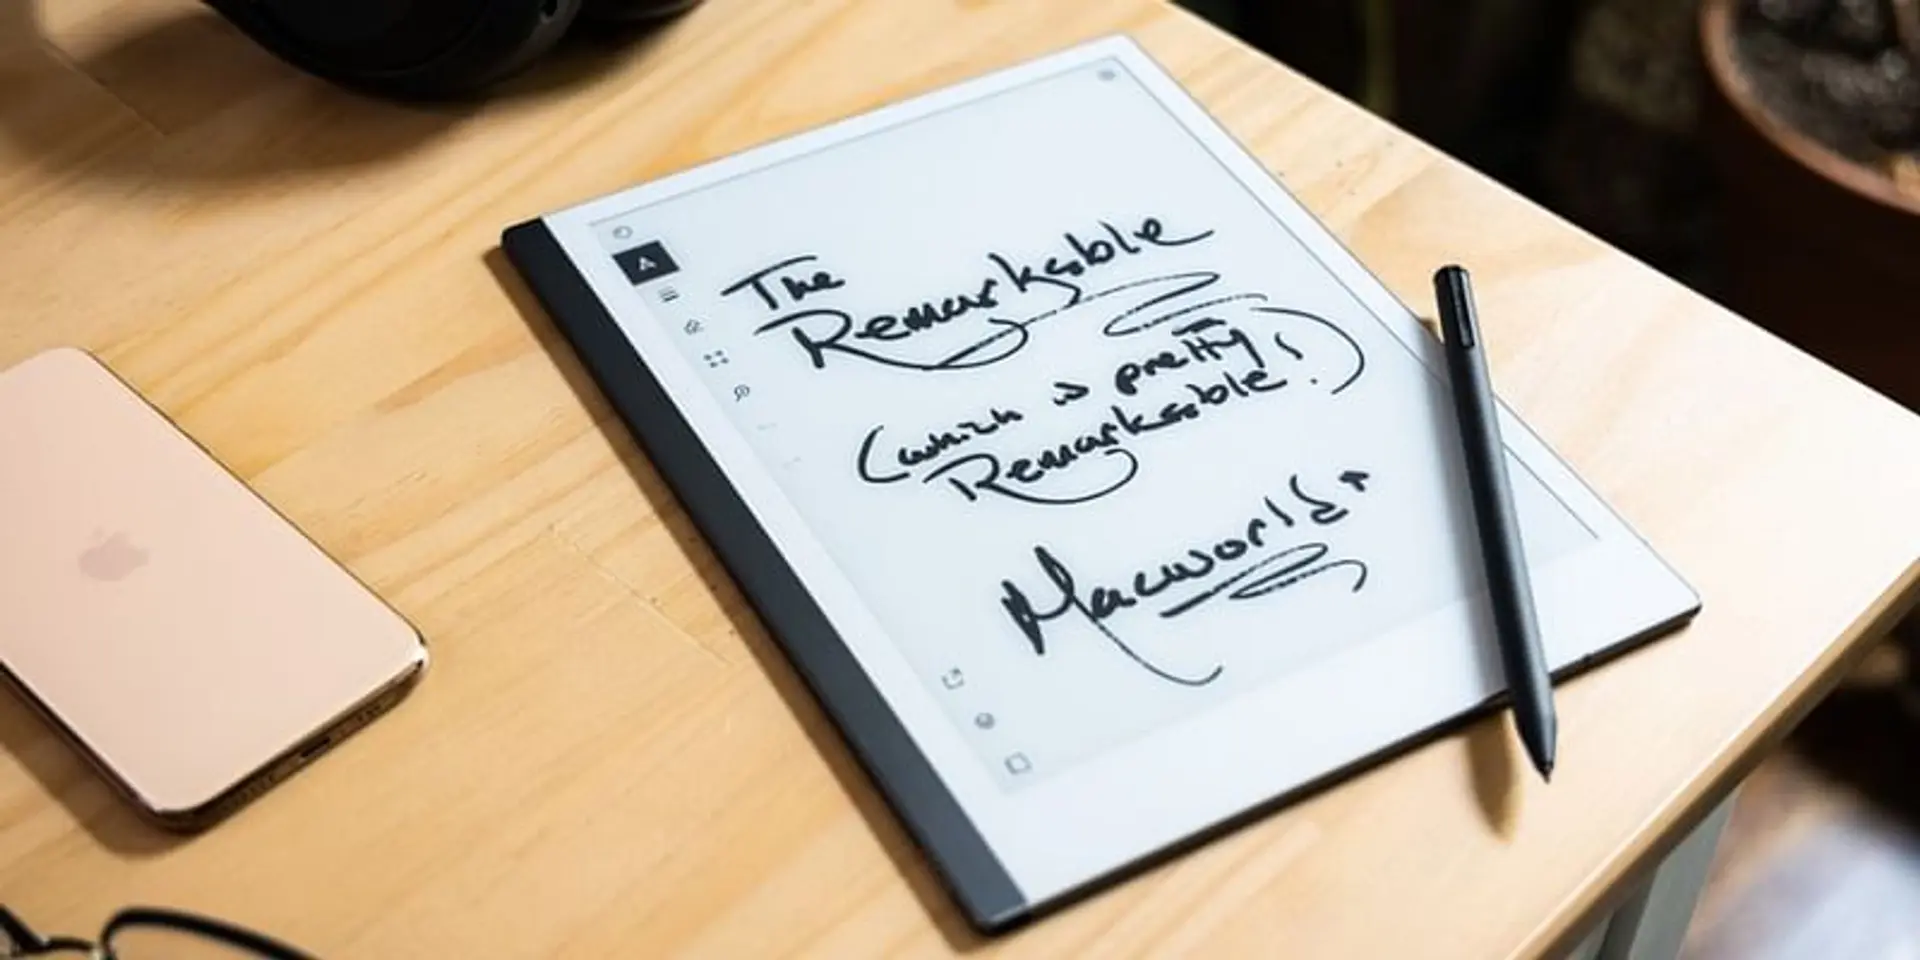 The
Remarkable
(which is pretty
Remarkable!)
Macworld